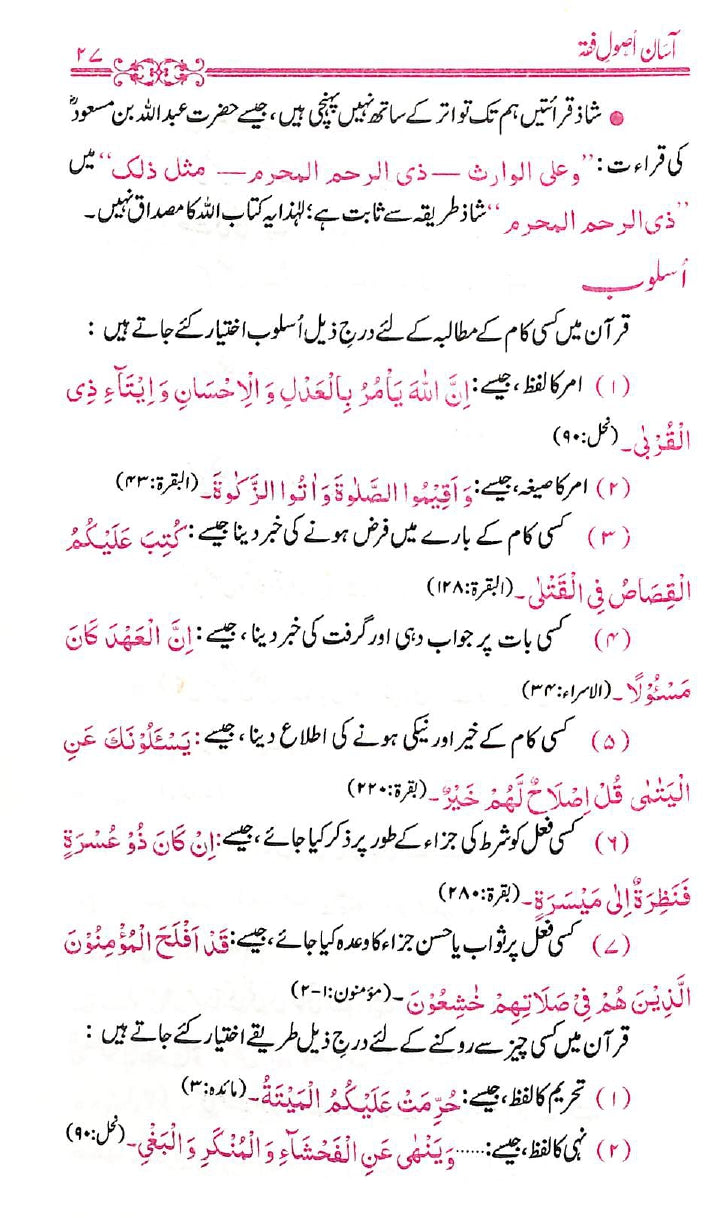 آسان اُصولِ فقہ ۲۷
● شاذ قرائتیں ہم تک تواتر کے ساتھ نہیں پہنچی ہیں، جیسے حضرت عبداللہ بن مسعودؓ
کی قراءت: ”وعلی الوارث — ذی الرحم المحرم — مثل ذلک“ میں
”ذی الرحم المحرم“ شاذ طریقہ سے ثابت ہے؛ لہٰذا یہ کتاب اللہ کا مصداق نہیں۔
اُسلوب
قرآن میں کسی کام کے مطالبہ کے لئے درجِ ذیل اُسلوب اختیار کئے جاتے ہیں :
(۱) امر کا لفظ، جیسے: اِنَّ اللہَ یَأمُرُ بِالْعَدْلِ وَالْاِحْسَانِ وَاِیْتَآءِ ذِی
الْقُرْبٰی۔ (نحل:۹۰)
(۲) امر کا صیغہ، جیسے: وَاَقِیْمُوا الصَّلٰوۃَ وَاٰتُوا الزَّکٰوۃَ۔ (البقرۃ:۴۳)
(۳) کسی کام کے بارے میں فرض ہونے کی خبر دینا جیسے: کُتِبَ عَلَیْکُمُ
الْقِصَاصُ فِی الْقَتْلٰی۔ (البقرۃ:۱۲۸)
(۴) کسی بات پر جواب دہی اور گرفت کی خبر دینا، جیسے: اِنَّ الْعَہْدَ کَانَ
مَسْئُوْلًا۔ (الاسراء:۳۴)
(۵) کسی کام کے خیر اور نیکی ہونے کی اطلاع دینا، جیسے: یَسْئَلُوْنَکَ عَنِ
الْیَتٰمٰی قُلْ اِصْلَاحٌ لَّہُمْ خَیْرٌ۔ (بقرۃ:۲۲۰)
(۶) کسی فعل کو شرط کی جزاء کے طور پر ذکر کیا جائے، جیسے: اِنْ کَانَ ذُوْ عُسْرَۃٍ
فَنَظِرَۃٌ اِلٰی مَیْسَرَۃٍ۔ (بقرۃ:۲۸۰)
(۷) کسی فعل پر ثواب یا حسن جزاء کا وعدہ کیا جائے، جیسے: قَدْ اَفْلَحَ الْمُؤْمِنُوْنَ
الَّذِیْنَ ہُمْ فِیْ صَلَاتِہِمْ خٰشِعُوْنَ۔ (مؤمنون:۱-۲)
قرآن میں کسی چیز سے روکنے کے لئے درجِ ذیل طریقے اختیار کئے جاتے ہیں :
(۱) تحریم کا لفظ، جیسے: حُرِّمَتْ عَلَیْکُمُ الْمَیْتَۃُ۔ (مائدہ:۳)
(۲) نہی کا لفظ، جیسے: ...... وَیَنْہٰی عَنِ الْفَحْشَآءِ وَالْمُنْکَرِ وَالْبَغْیِ۔ (نحل:۹۰)